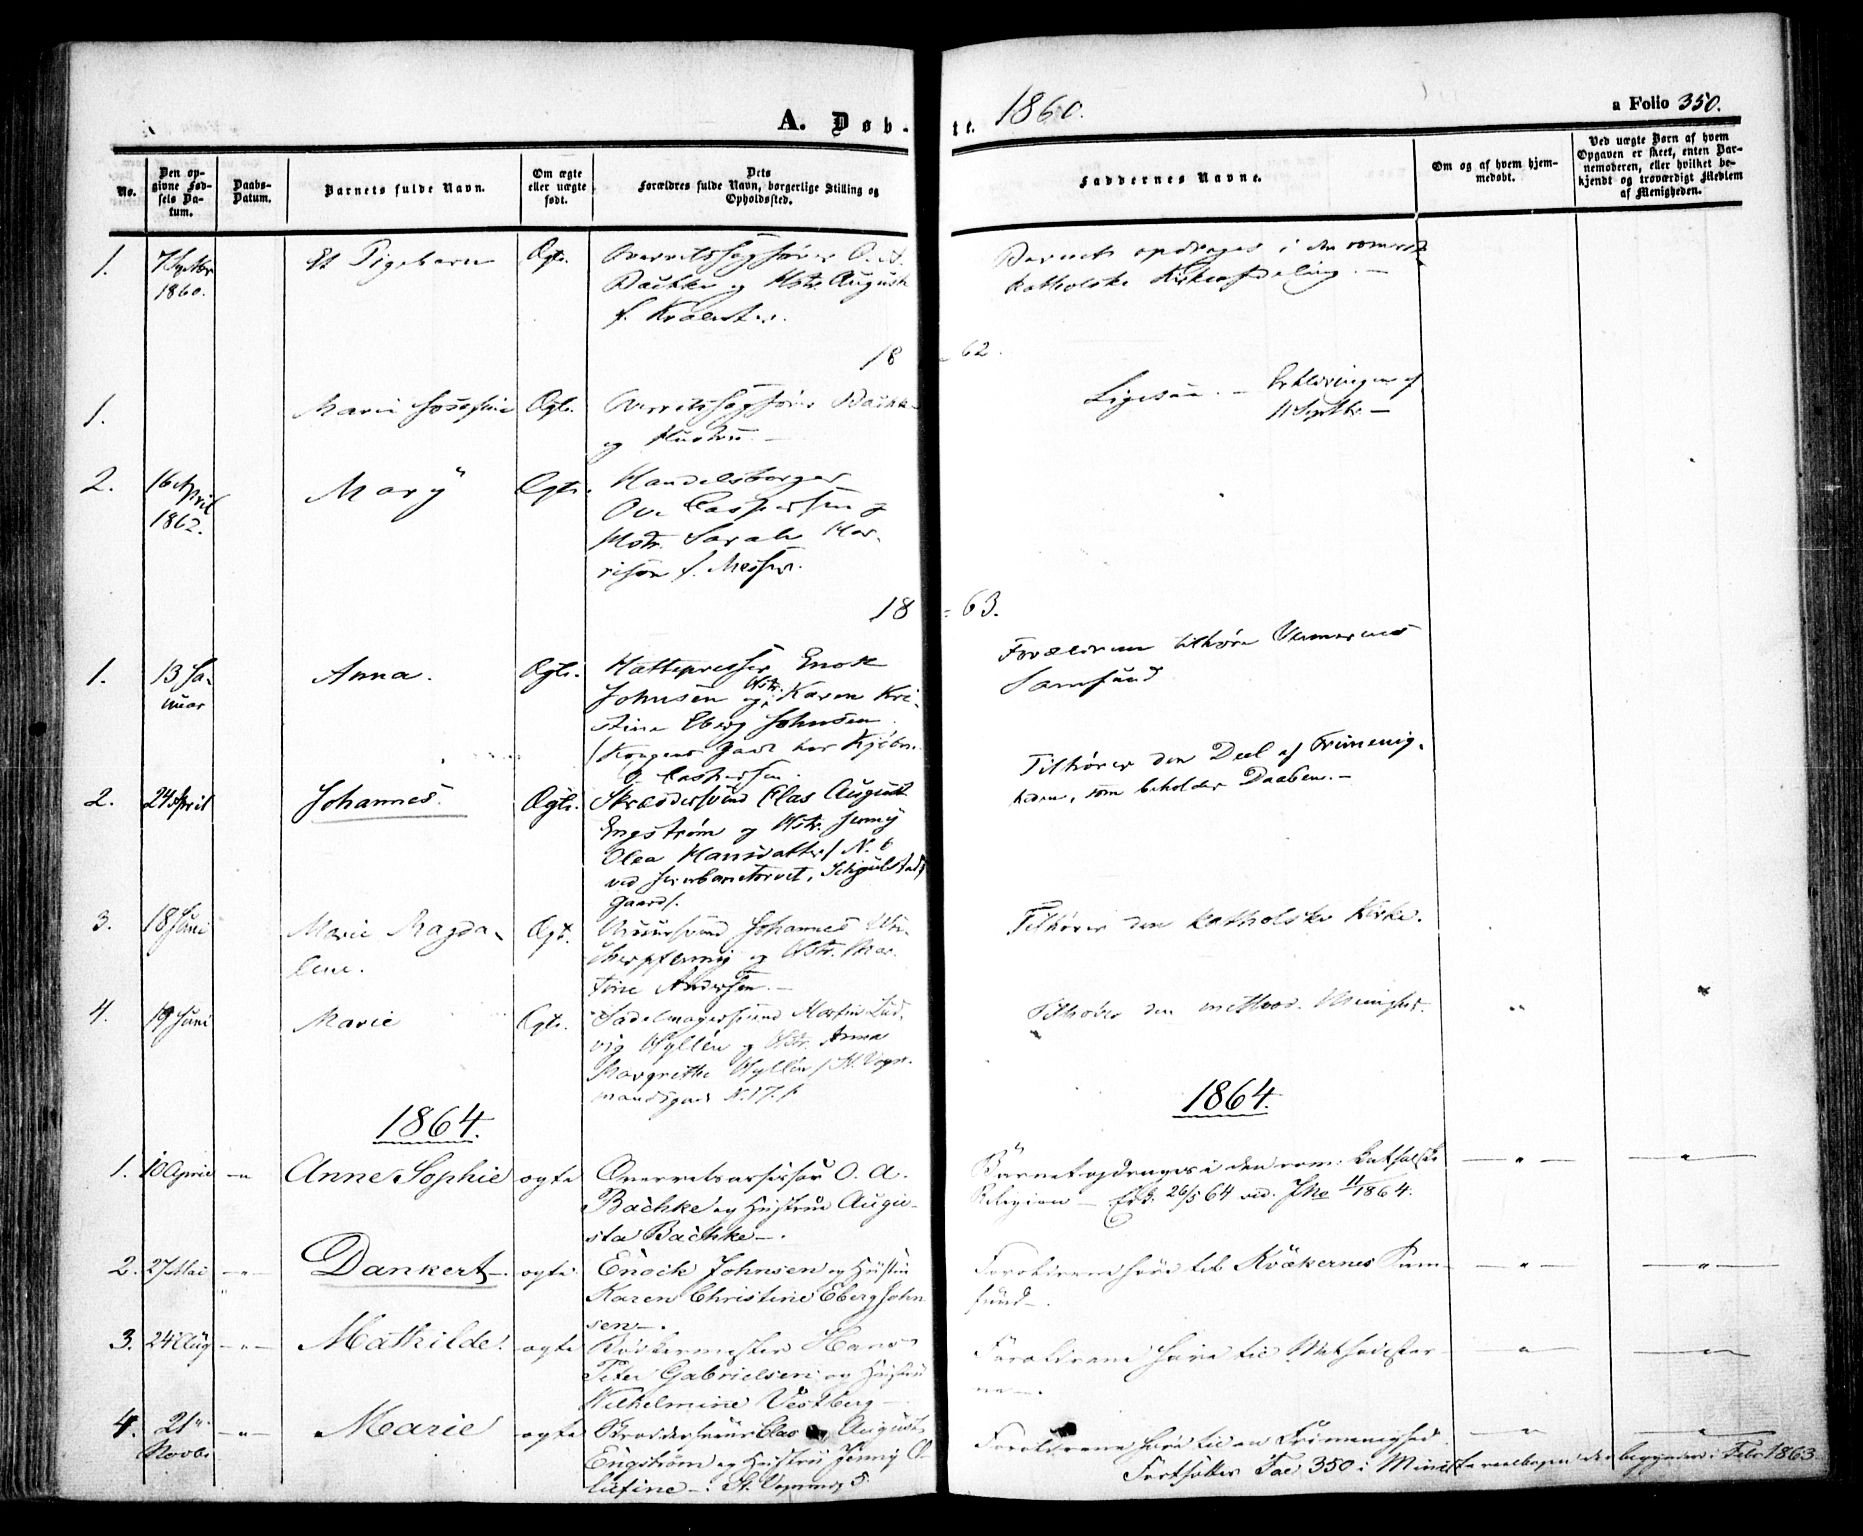 A. Døb-
te. 1860.
a Folio 350.
No.
Den op-
givne Fød-
sels Da-
tum.
Daabs-
Datum.
Barnets fulde Navn.
Om ægte
eller uægte
født.
Dets
Forældres fulde Navn, borgerlige Stilling og
Opholdssted.
Faddernes Navne.
Om og af hvem hjem-
medøbt.
Ved uægte Børn af hvem
Opgaven er skeet, enten Bar-
nemoderen, eller hvilket be-
kjendt og troværdigt Medlem
af Menigheden.
1.
7 Septbr
1860.
Et Pigebarn
Ægte.
Overretssagfører O. A.
Bachke og Hstr. August
f.
Barnet opdrages i den romersk
katholske Kirkeafdeling. –
18 – 62.
1.
Marie Josefine
Ægte.
Overretssagfører Bachke
og Hustru. –
Ligesaa. – Erklæringen af
11 Septbr –
2.
16 April
1862.
Mary
Ægte.
Handelsborger
Ove Caspersen og
Hstr. Sarah Har-
rison f.
18 – 63.
1.
13 Ja-
nuar
Anna.
Ægte.
Hattepresser Enok
Johnsen og Hstr. Karen Kri-
stine Eberg Johnsen
Forældrene tilhøre Vennernes
Samfund
2.
24 April
Johannes.
Ægte.
Skræddersvend Clas August
Engstrøm og Hstr. Jenny
Olea Hansdatter / N. 6
ved Jernbanetorvet,
Gaard/.
Tilhører den Deel af Frimenig-
heden, som beholder Daaben. –
3.
18 Juni
Marie Magda-
lene.
Ægt.
Johannes
og Hstr. Mar-
tine Andersen. –
Tilhører den katholske Kirke.
4.
19 Juni
Marie
Ægte.
Sadelmagersvend Martin Lud-
vig Hyllén og Hstr. Anna
Margrethe Hyllén / St. Vogn-
mandsgade N. 17. /
Tilhører den method. Menighed.
"
1864.
1864.
1. 10 April – " Anne Sophie ægte
Overretsassessor O. A.
Bachke og Hustrue Augu-
sta Bachke –.
Barnet opdrages i den rom: katholske
Religion – Erk. 26/5 64 ved. Jno 11/1864.
– " –
– " –
2. 27 Mai – " – Dankert –. ægte
Enock Johnsen og Hustru
Karen Christine Eberg John
sen –.
Forældrene høre til Kvækernes Sam-
fund –.
– " –
– " –
3. 24 Aug – " – Mathilde. ægte
Bødkermester Hans
Peter Gabrielsen og Hustru
Wilhelmine Vestberg –
Forældrene høre til Methodister-
ne –.
– " –
– " –
4. 21
Novbr – " – Marie ægte
Clas August
Engström og Hustru Jenny O-
lufine –. St. Vognmg 5
Forældrene høre til en Frimenighed
– " –
– " –
Fortsættes Fol 350 i Ministerialbogen der begynder i Febr 1863